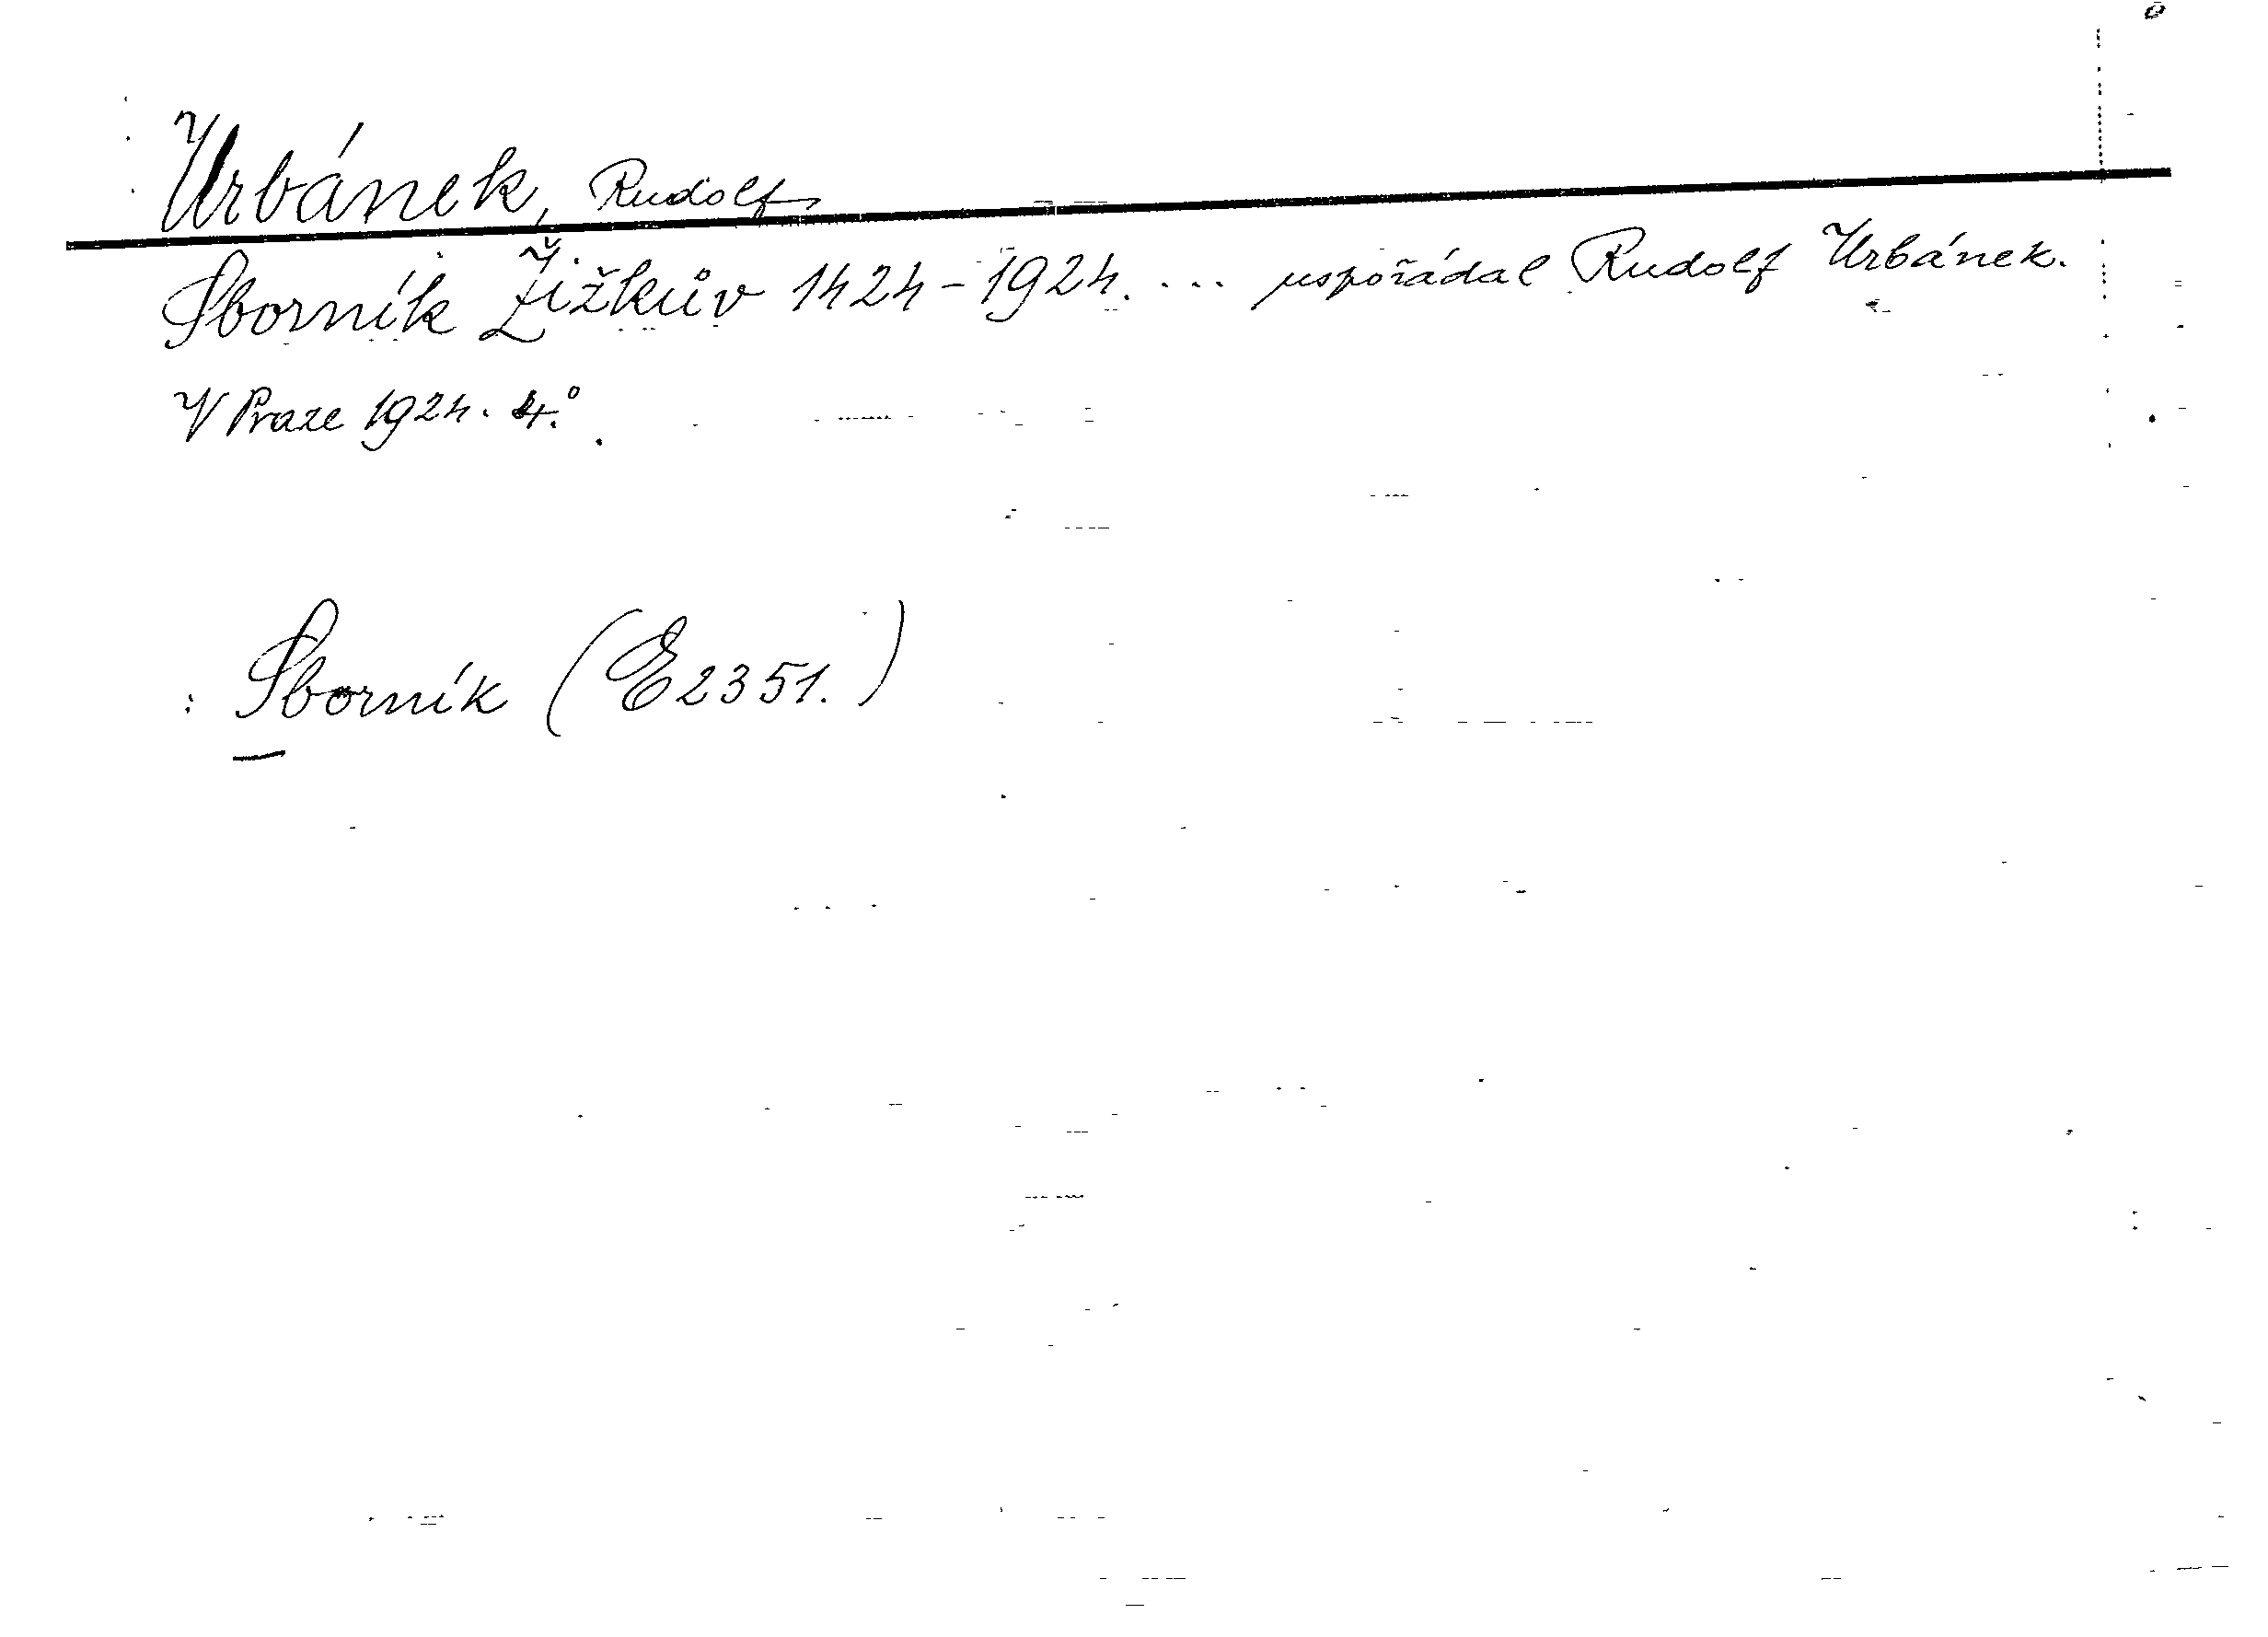 Urbánek, Rudolf
Sborník Žižkův 1424-1924. ... uspořádal Rudolf Urbánek.
V Praze 1924. 4.°
: Sborník (E2351.)